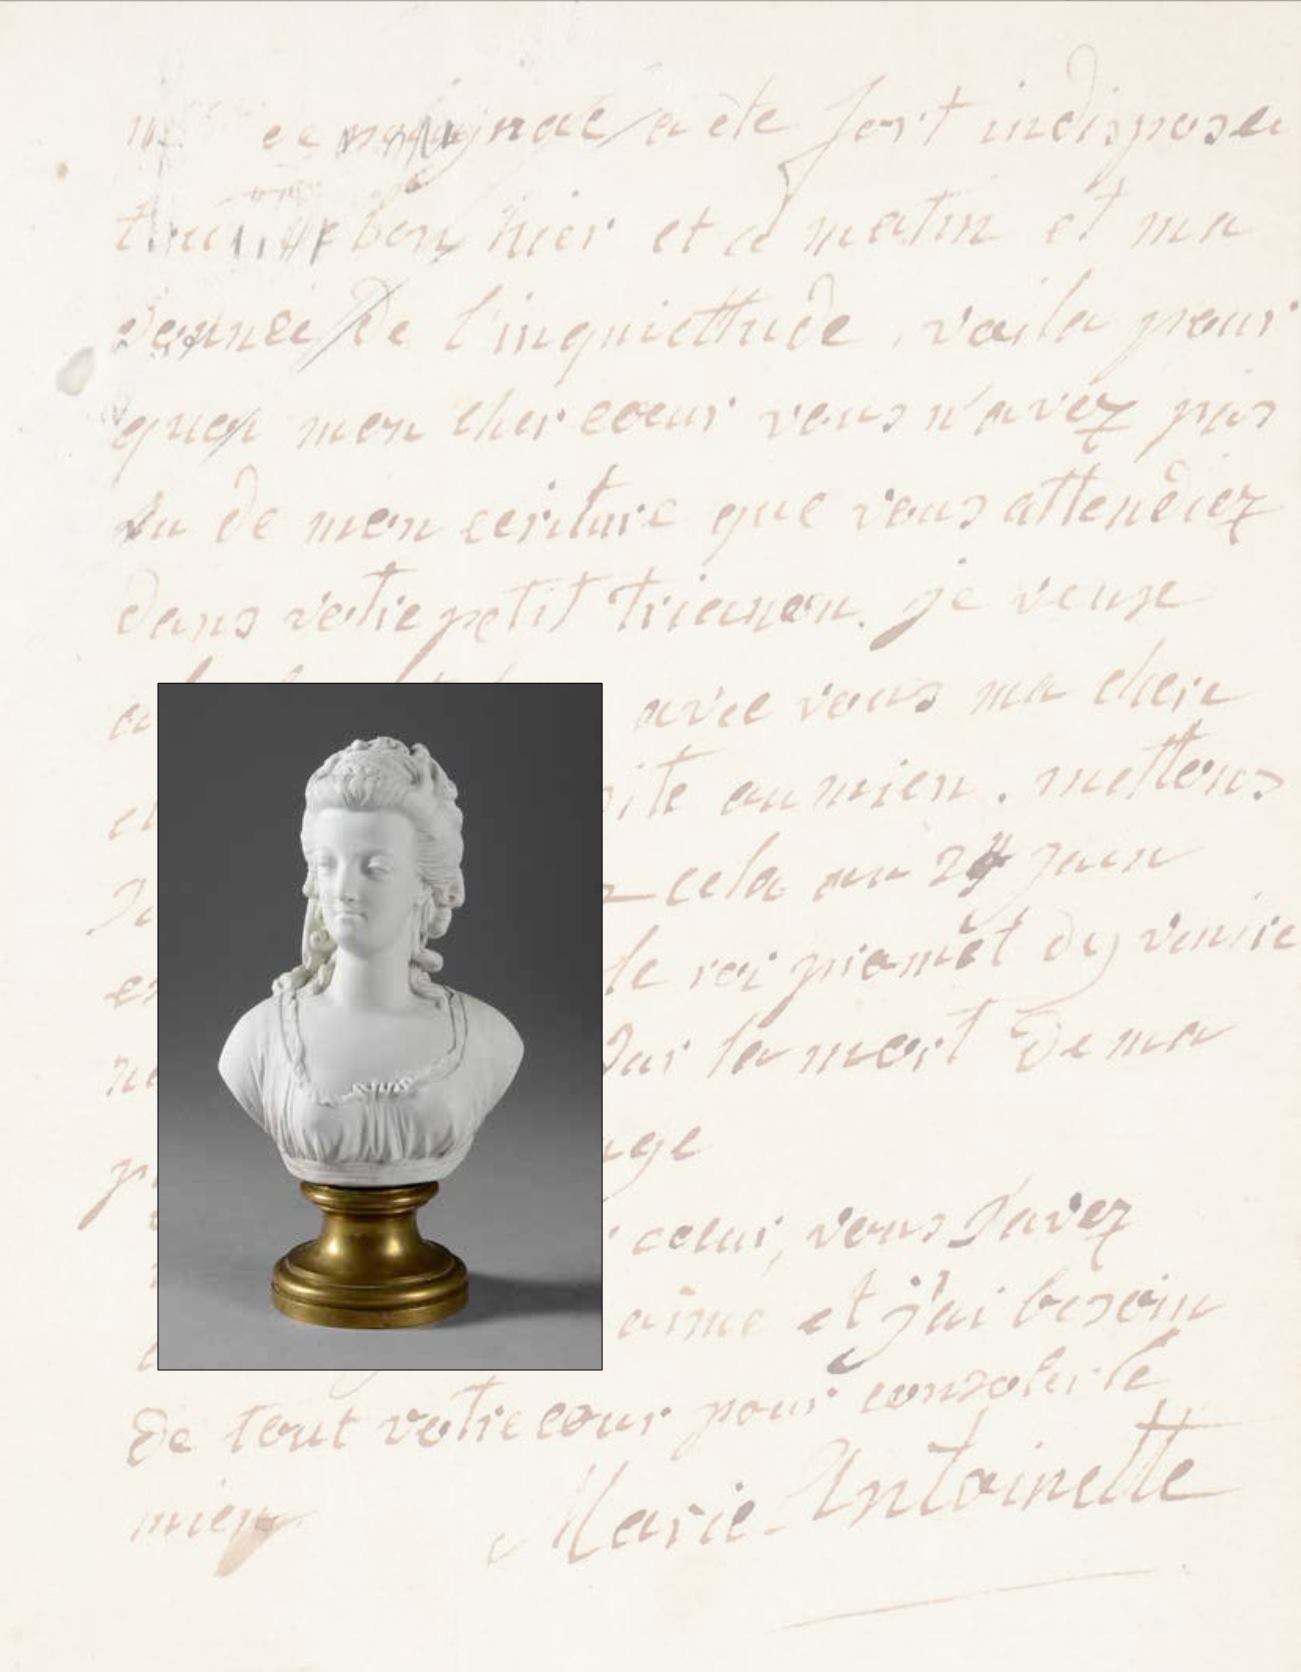 a été fort indisposée
hier et ce matin et ma
donnée de l'inquiettude, voila pour
quoy mon cher coeur vous n'avez pas
eu de mon ecriture que vous attendiez
dans votre petit trianon. je veux
avec vous ma chere
au mien. mettons
cela au 24 juin
le roi promet dy venire
la mort de ma
coeur, vous savez
aime et j'ai besoin
de tout votre coeur pour consoler le
mien Marie-Antoinette